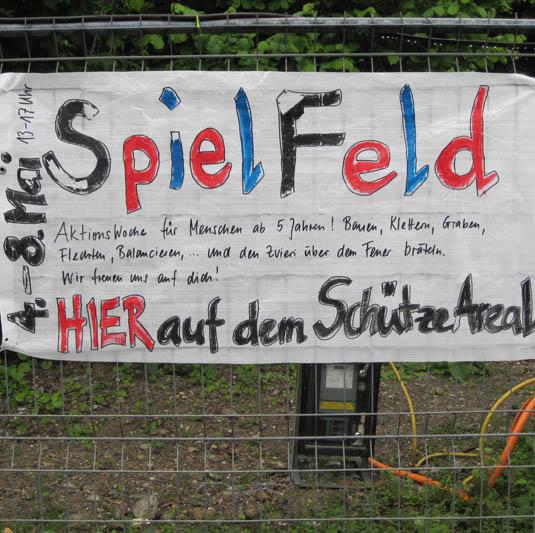 4.-8. Maï 13-17 Uhr
SpielFeld
AktionsWoche für Menschen ab 5 Jahren! Bauen, Klettern, Graben,
Flechten, Balancieren, ... und den Zvieri über dem Feuer bräteln.
Wir freuen uns auf dich!
HIER auf dem SchützeAreal